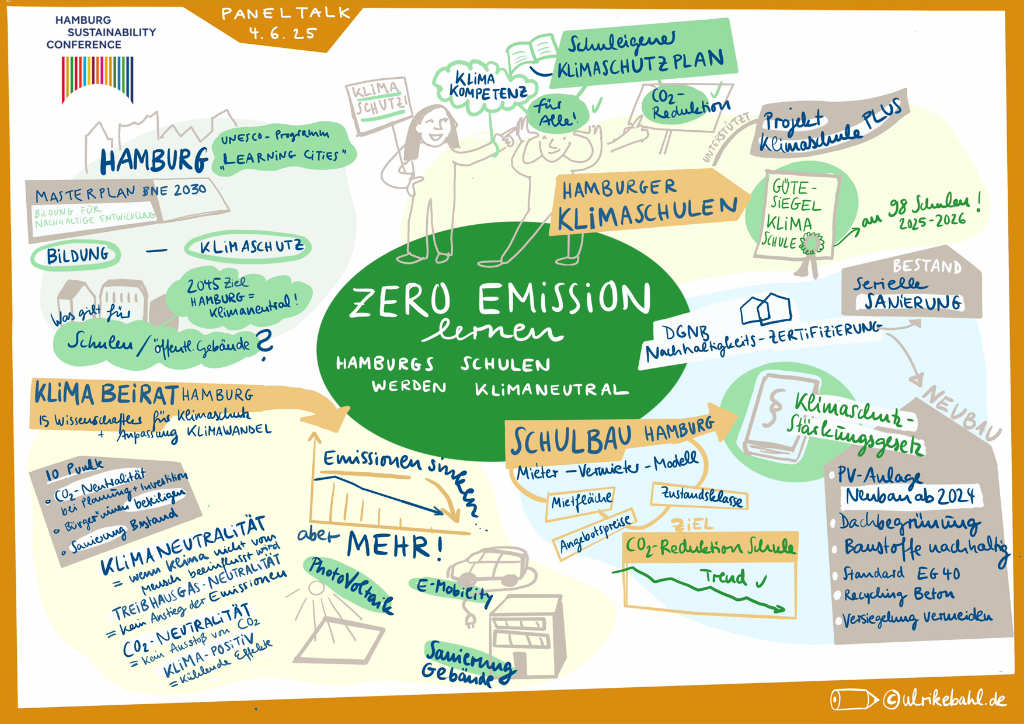 HAMBURG
SUSTAINABILITY
CONFERENCE
PANELTALK
4.6.25
HAMBURG
UNESCO-Programm
"LEARNING CITIES"
MASTERPLAN BNE 2030
BILDUNG FÜR
NACHHALTIGE ENTWICKLUNG
BILDUNG — KLIMASCHUTZ
2045 Ziel
HAMBURG =
Klimaneutral!
Was gilt für
Schulen / öffentl. Gebäude ?
KLIMA SCHUTZ!
KLIMA
KOMPETENZ
für
Alle!
Schuleigener
KLIMASCHUTZPLAN
CO2-
Reduktion
UNTERSTÜTZT
Projekt
Klimaschule PLUS
HAMBURGER
KLIMASCHULEN
GÜTE-
SIEGEL
KLIMA
SCHULE
an 98 Schulen!
2025-2026
ZERO EMISSION
lernen
HAMBURGS SCHULEN
WERDEN KLIMANEUTRAL
DGNB
Nachhaltigkeits-ZERTIFIZIERUNG
BESTAND
serielle
SANIERUNG
NEUBAU
KLIMA BEIRAT HAMBURG
15 Wissenschaftler für Klimaschutz
+ Anpassung KLIMAWANDEL
10 Punkte
• CO2-Neutralität
bei Planung + Investition
• Bürger*innen beteiligen
• Sanierung Bestand
KLIMANEUTRALITÄT
= wenn Klima nicht vom
Mensch beeinflusst wird
TREIBHAUSGAS-NEUTRALITÄT
= kein Anstieg der Emissionen
CO2-NEUTRALITÄT
= Kein Ausstoß von CO2
KLIMA-POSITIV
= Kühlende Effekte
Emissionen sinken,
aber MEHR!
PhotoVoltaik
E-Mobility
Sanierung
Gebäude
SCHULBAU HAMBURG
Mieter-Vermieter-Modell
Mietfläche
Angebotspreise
Zustandsklasse
ZIEL
CO2-Reduktion Schule
Trend ✓
§
Klimaschutz-
Stärkungsgesetz
• PV-Anlage
Neubau ab 2024
• Dachbegrünung
• Baustoffe nachhaltig
• Standard EG 40
• Recycling Beton
• Versiegelung vermeiden
©ulrikebahl.de